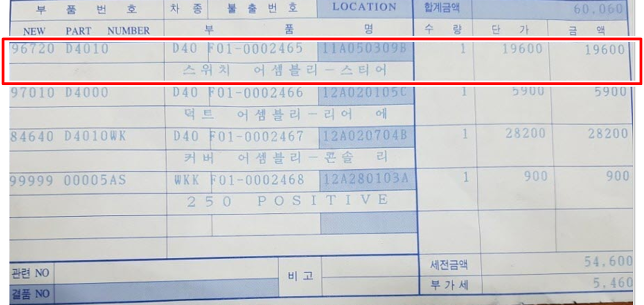 부 품 번 호 차 종 불 출 번 호 LOCATION 합계금액 60,060
NEW PART NUMBER 부 품 명 수 량 단 가 금 액
96720 D4010 D40 F01-0002465 11A050309B 1 19600 19600
스위치 어셈블리-스티어
97010 D4000 D40 F01-0002466 12A020105C 1 5900 5900
덕트 어셈블리-리어 에
84640 D4010WK D40 F01-0002467 12A020704B 1 28200 28200
커버 어셈블리-콘솔 리
99999 00005AS WKK F01-0002468 12A280103A 1 900 900
250 POSITIVE
관련 NO 비 고 세전금액 54,600
결품 NO 부 가 세 5,460